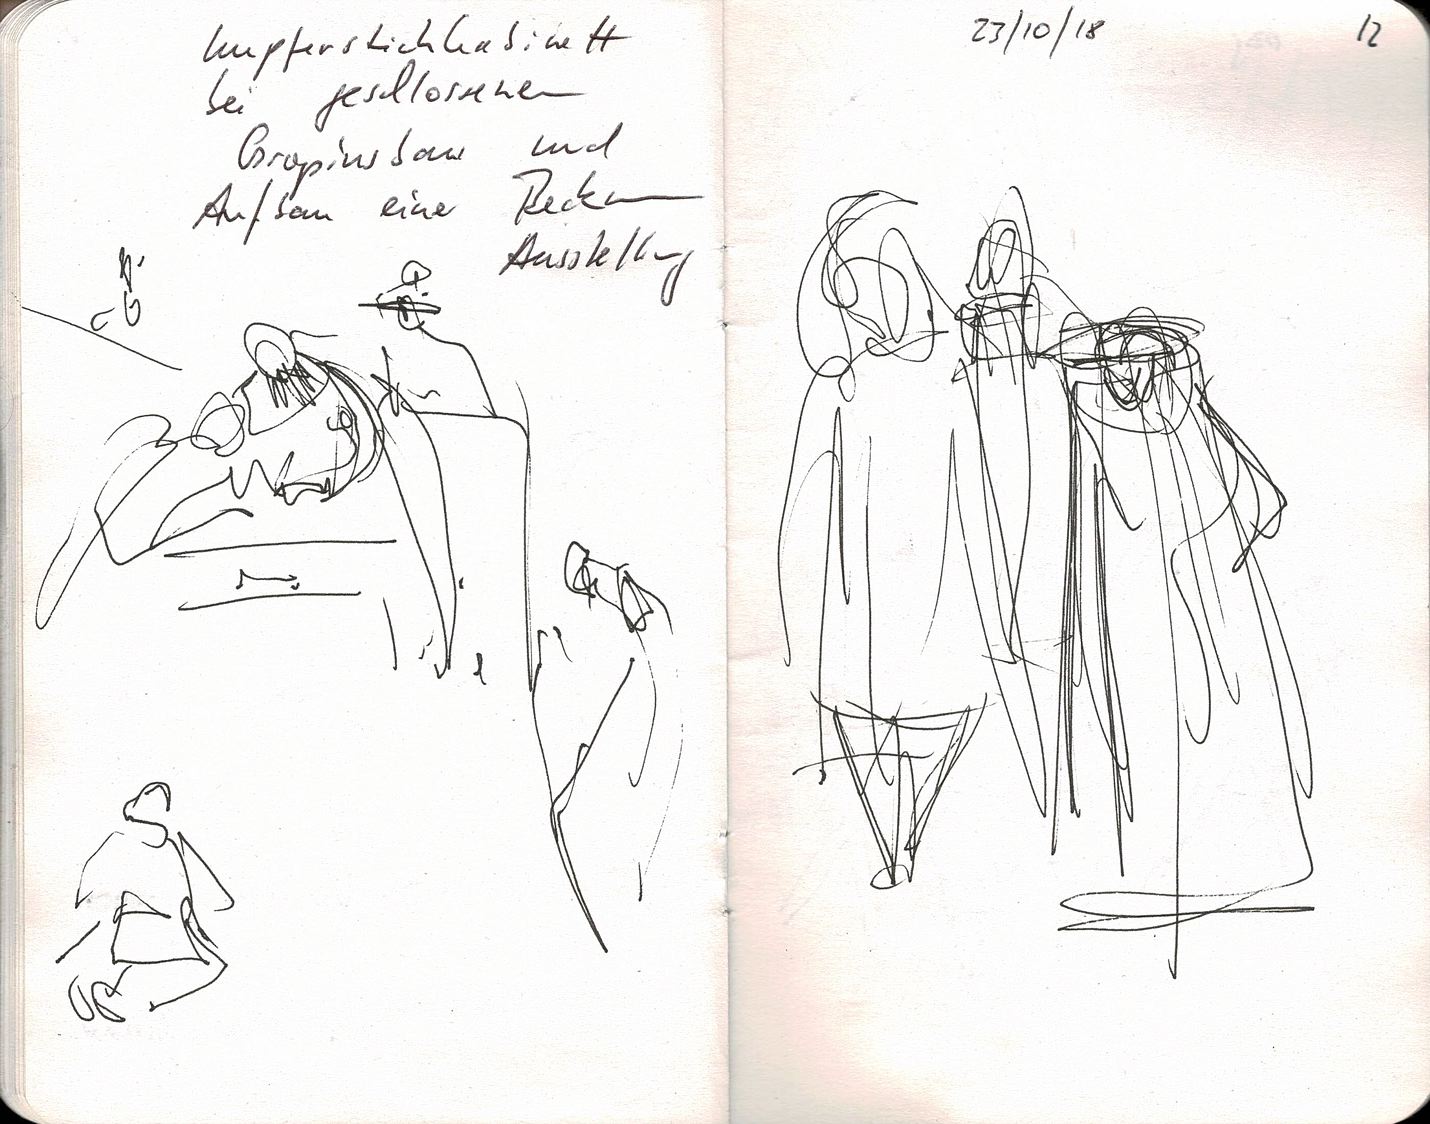 Kupferstichkabinett
bei geschlossenem
Gropiusbau und
Aufbau einer Beckmann
Ausstellung
23/10/18
12